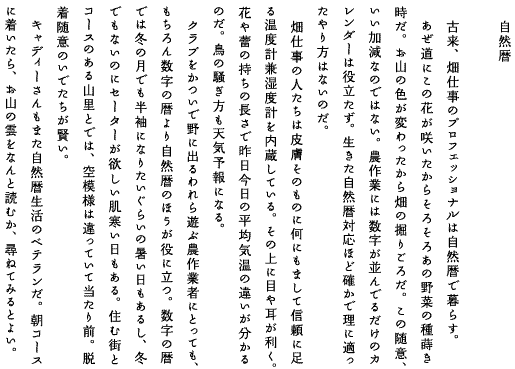 自然暦
古来、畑仕事のプロフェッショナルは自然暦で暮らす。
あぜ道にこの花が咲いたからそろそろあの野菜の種蒔き
時だ。お山の色が変わったから畑の掘りごろだ。この随意、
いい加減なのではない。農作業には数字が並んでるだけのカ
レンダーは役立たず。生きた自然暦対応ほど確かで理に適っ
たやり方はないのだ。
畑仕事の人たちは皮膚そのものに何にもまして信頼に足
る温度計兼湿度計を内蔵している。その上に目や耳が利く。
花や蕾の持ちの長さで昨日今日の平均気温の違いが分かる
のだ。鳥の騒ぎ方も天気予報になる。
クラブをかついで野に出るわれら遊ぶ農作業者にとっても、
もちろん数字の暦より自然暦のほうが役に立つ。数字の暦
では冬の月でも半袖になりたいぐらいの暑い日もあるし、冬
でもないのにセーターが欲しい肌寒い日もある。住む街と
コースのある山里とでは、空模様は違っていて当たり前。脱
着随意のいでたちが賢い。
キャディーさんもまた自然暦生活のベテランだ。朝コース
に着いたら、お山の雲をなんと読むか、尋ねてみるとよい。